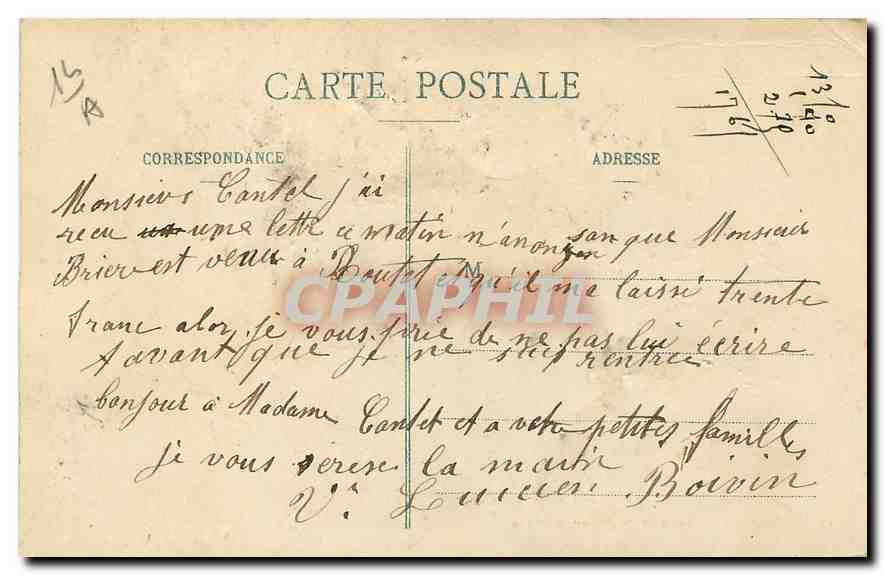 CARTE POSTALE
CORRESPONDANCE
ADRESSE
Monsieur Cantel j'ai
recu une lettre ce matin n'anon san que Monsieur
Brier est venu à et qu'il ma laissé trente
franc alor je vous prie de ne pas lui écrire
avant que je ne suis rentrée
bonjour à Madame Cantel et a votre petites familles
je vous serere la main
Ve Lucien Boivin
M
CPAPHIL
15
A
1310
2170
1761